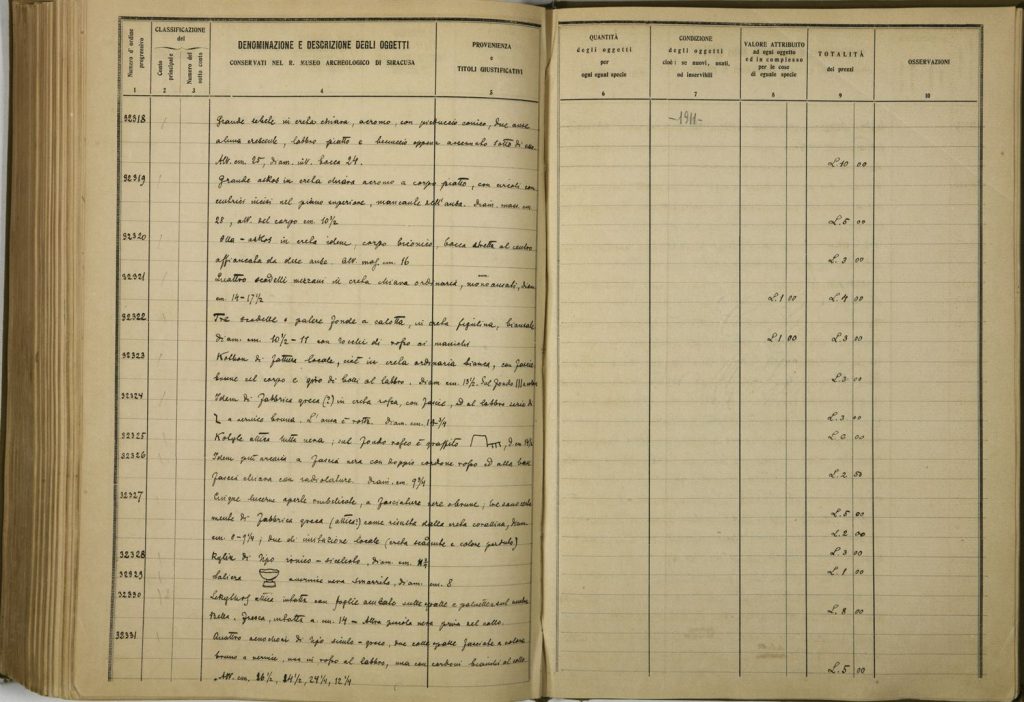 Numero d'ordine progressivo
CLASSIFICAZIONE
del
Conto principale
Numero del sotto conto
DENOMINAZIONE E DESCRIZIONE DEGLI OGGETTI
CONSERVATI NEL R. MUSEO ARCHEOLOGICO DI SIRACUSA
PROVENIENZA
e
TITOLI GIUSTIFICATIVI
QUANTITÀ
degli oggetti
per
ogni egual specie
CONDIZIONE
degli oggetti
cioè: se nuovi, usati,
od inservibili
VALORE ATTRIBUITO
ad ogni oggetto
ed in complesso
per le cose
di eguale specie
TOTALITÀ
dei prezzi
OSSERVAZIONI
1 2 3 4 5 6 7 8 9 10
-1911-
32318 Grande lebete in creta chiara, acromo, con pieduccio conico, due anse
a luna crescente, labbro piatto e
Alt. cm. 25, diam. bocca 24. L. 10 00
32319 Grande askos in creta chiara acromo a corpo piatto, con circoli con
centrici incisi nel piano superiore, mancante dell'ansa. Diam. mass. cm.
28, alt. del corpo cm. 10½ L. 5 00
32320 Olla-askos in creta idem, corpo biconico, bocca stretta al centro
affiancata da due anse. Alt. mass. cm. 16 L. 3 00
32321 Quattro scodelli mezzani in creta chiara ordinaria, monoansati, diam.
cm. 14-17½ L. 1 00 L. 4 00
32322 Tre scodelle o patere fonde a calotta, in creta figulina, biansate
Diam. cm. 10½-11 con di rosso ai manichi L. 1 00 L. 3 00
32323 di fattura locale, in creta ordinaria bianca, con fascie
brune nel corpo e giro di al labbro. diam cm. 13½. Sul fondo L. 3 00
32324 Idem di fabbrica greca (?) in creta rossa, con fascie, ed al labbro serie di
a vernice bruna. L'ansa è rotta. diam. cm. L. 3 00
32325 Kotyle attica tutta nera; sul fondo rosso è graffito L. 6 00
32326 Idem più arcaica a fascia nera con doppio cordone rosso ed alla base
fascia chiara con radiolature. Diam. cm. 9¾ L. 2 50
32327 Cinque lucerne aperte ombelicate, a fasciature nere o brune; tre
mente di fabbrica greca (attica?) come risulta dalla creta corallina, diam.
L. 5 00
cm. 8-9¼; due di imitazione locale (creta scadente e colore perduto) L. 2 00
32328 Kylix di tipo ionico-siceliota, diam. cm. L. 3 00
32329 Saliera a vernice nera smarrita, diam. cm. 8 L. 1 00
32330 Lekythos attica intatta con foglie sulle spalle e palmette
Fresca, intatta a. cm. 14 - Altra piccola nera priva del collo. L. 8 00
32331 Quattro oenochoai di tipo siculo-greco, due colle spalle fasciate a colore
bruno a vernice, una in rosso al labbro, una con cordoni bianchi al collo.
Alt. cm. 26½, 24½, 24¼, 12¼ L. 5 00